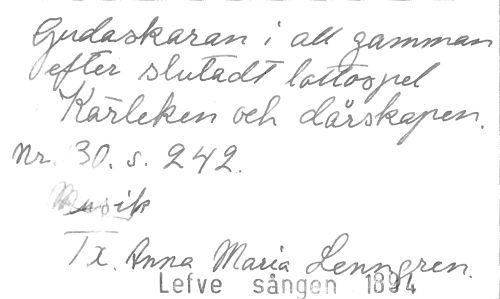 Gudaskaran i all gamman
efter slutadt lottospel
Kärleken och dårskapen.
Nr. 30. s. 242.
Musik
Tx. Anna Maria Lenngren.
Lefve sången 1894